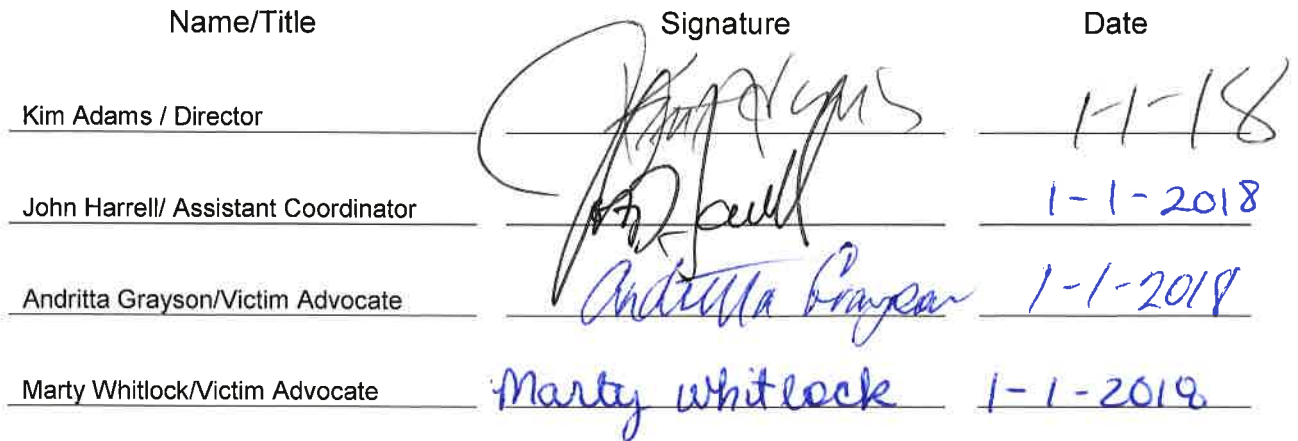 Name/Title Signature Date
Kim Adams / Director Kim Adams 1-1-18
John Harrell/ Assistant Coordinator 1-1-2018
Andritta Grayson/Victim Advocate Andritta Grayson 1-1-2018
Marty Whitlock/Victim Advocate Marty Whitlock 1-1-2018